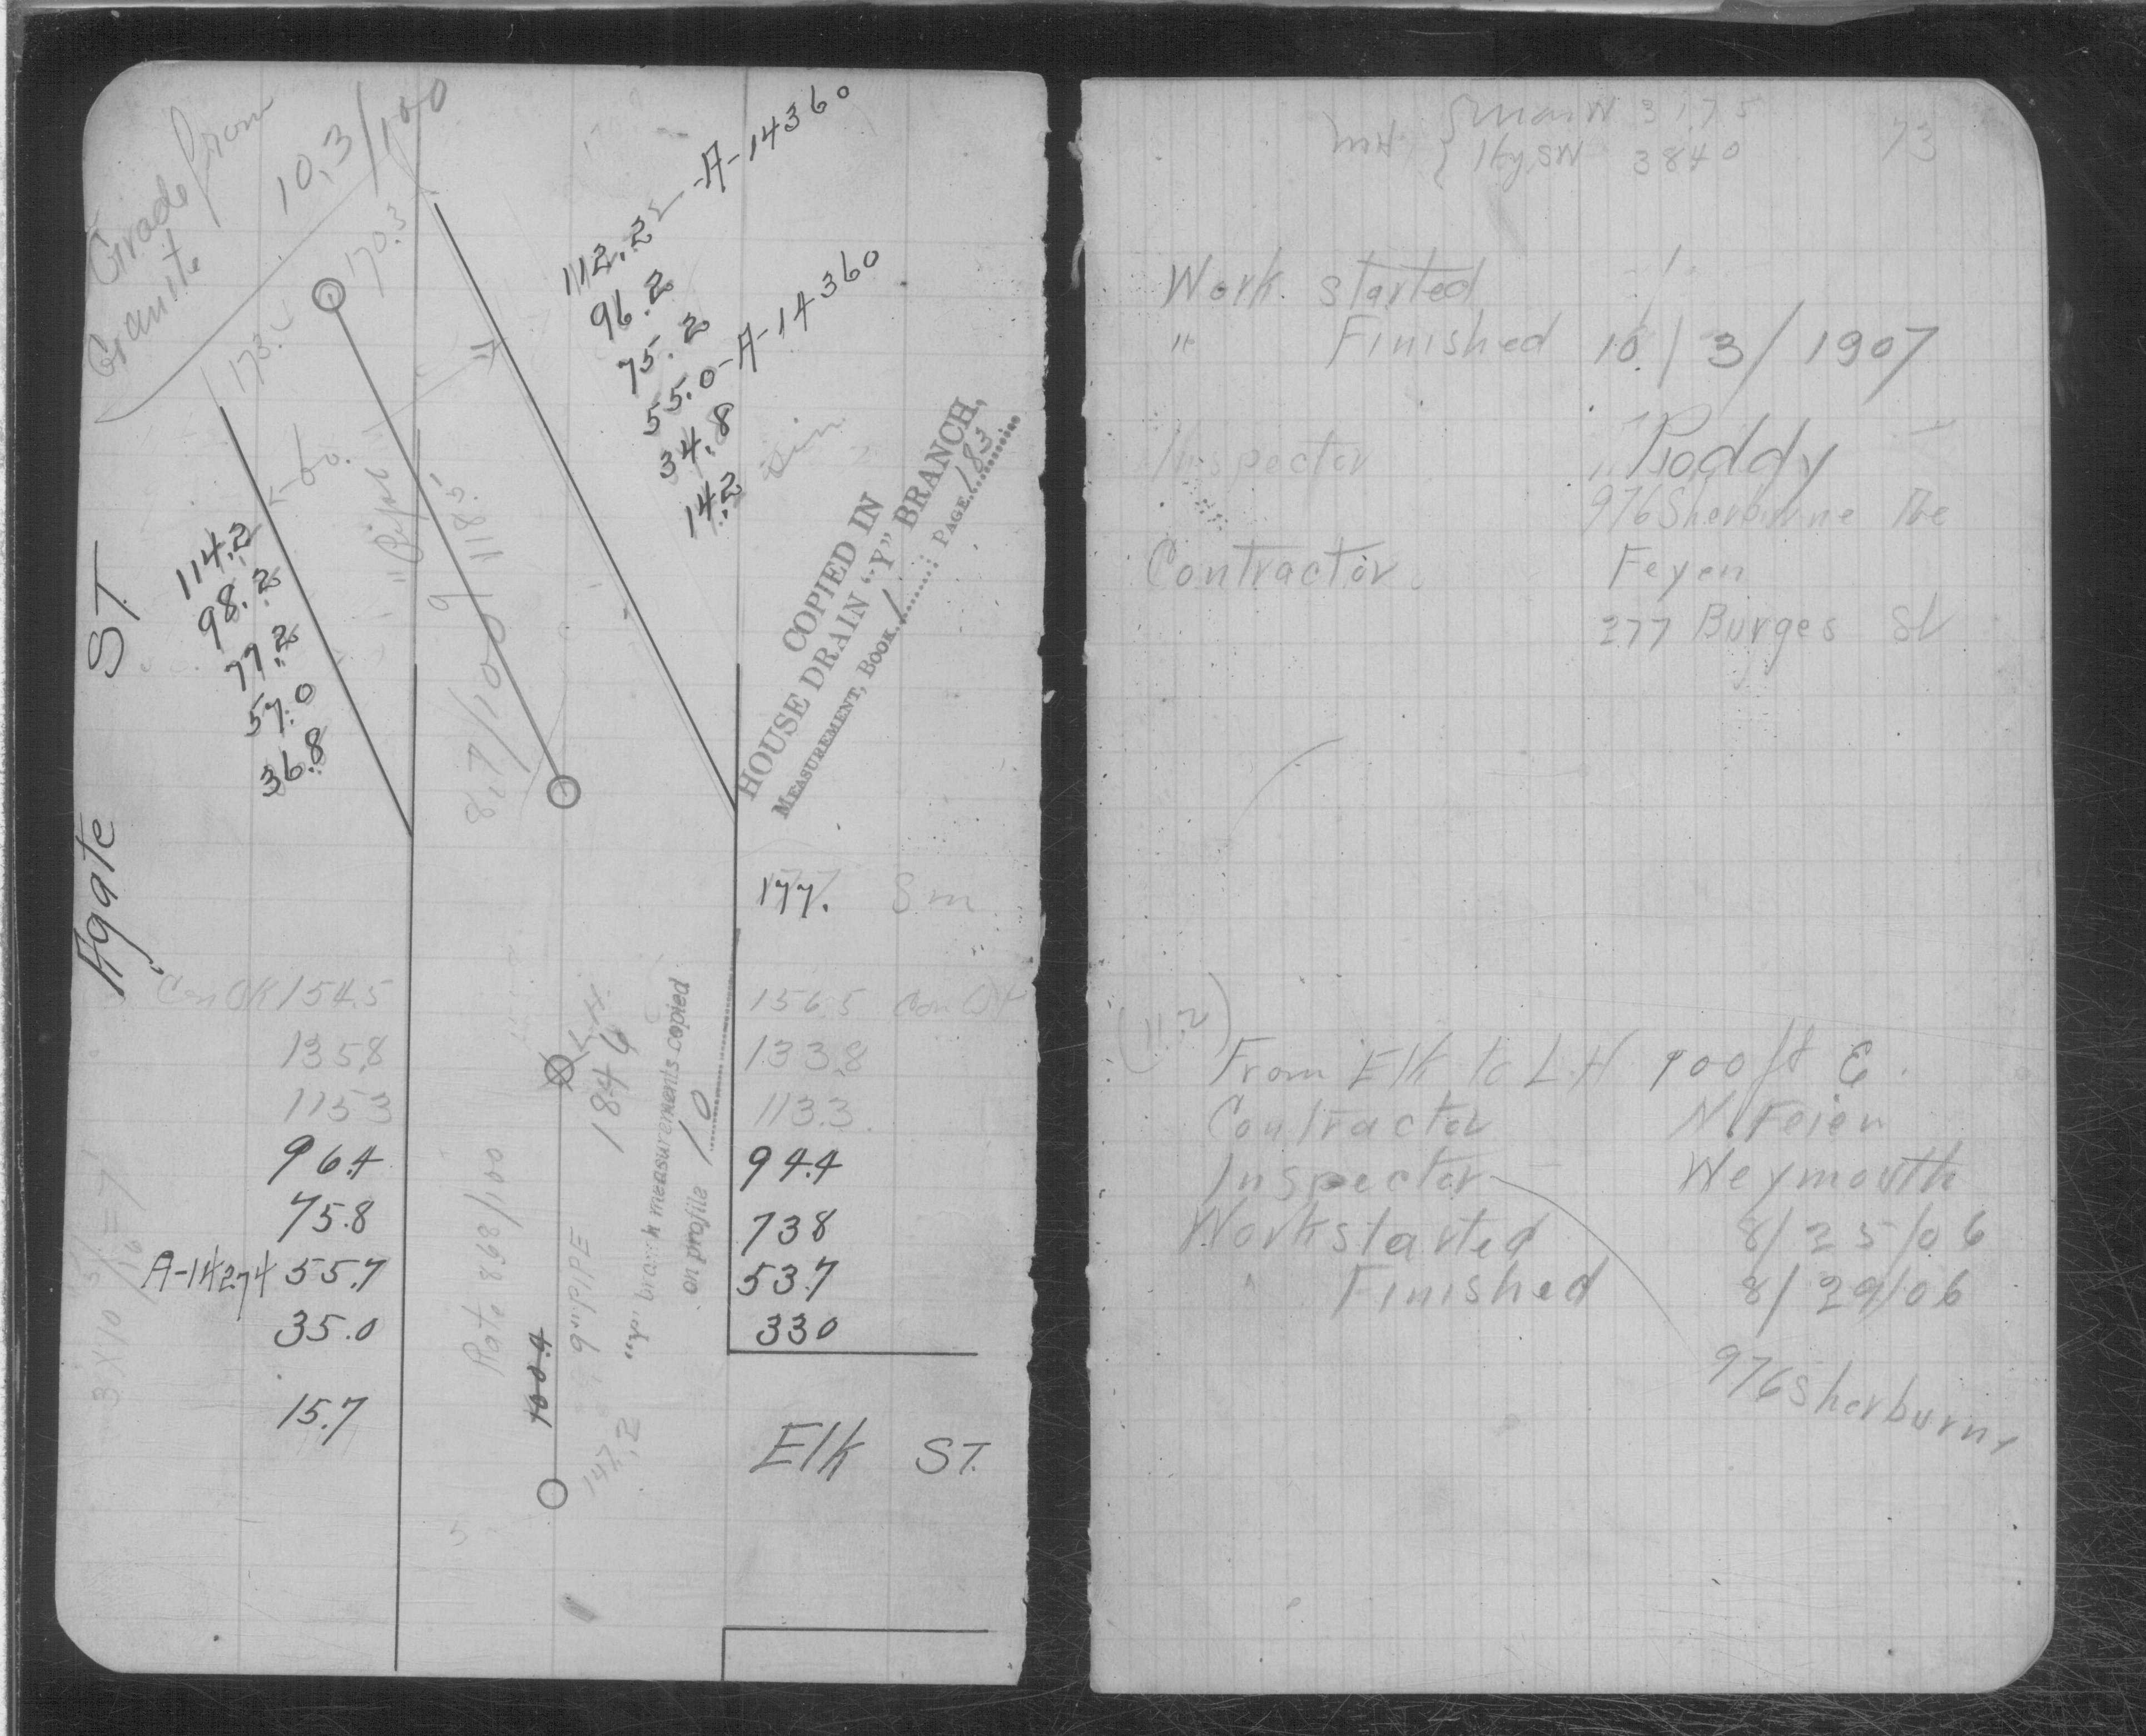 Grade from
Granite
10.3/100
170.3
112.2 - A-14360
96.2
75.2
55.0 - A-14360
34.8
14.2
60
"Pipe"
9
118.5
8.7/100
114.2
98.2
77.2
57.0
36.8
COPIED IN
HOUSE DRAIN "Y" BRANCH,
MEASUREMENT, BOOK 1 PAGE 183
Agate ST.
177.
Con OK 154.5
135.8
115.3
96.4
75.8
A-14274 55.7
35.0
15.7
L.H.
184.4
Rate 8.68/100
9" PIPE
100.4
147.2
"Y" branch measurements copied
on profile 10
156.5
133.8
113.3
94.4
73.8
53.7
33.0
Elk ST.
73
MH
3175
3840
Work started
" Finished 10/3/1907
Inspector Roddy
976 Sherburne
Contractor Feyen
277 Burges St
From Elk to L.H 100 ft E.
Contractor N. Feien
Inspector Weymouth
Work started 8/25/06
" Finished 8/29/06
976 Sherburne